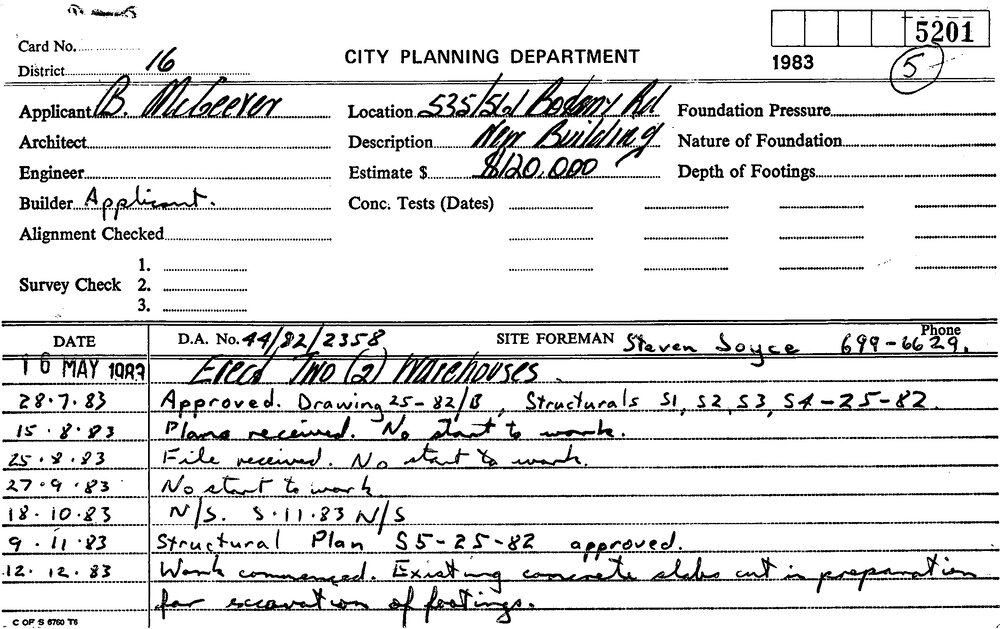 5201
Card No.
CITY PLANNING DEPARTMENT
1983
5
District 16
Applicant B. McGeever Location 535/561 Botany Rd Foundation Pressure
Architect Description New Building Nature of Foundation
Engineer Estimate $ $120,000 Depth of Footings
Builder Applicant. Conc. Tests (Dates)
Alignment Checked
1.
Survey Check 2.
3.
DATE D.A. No. 44/82/2358 SITE FOREMAN Steven Joyce Phone 699-6629.
16 MAY 1983 Erect Two (2) Warehouses.
28.7.83 Approved. Drawing 25-82/B, Structurals S1, S2, S3, S4-25-82.
15.8.83 Plans received. No start to work.
25.8.83 File received. No start to work.
27.9.83 No start to work
18.10.83 N/S. 8.11.83 N/S
9.11.83 Structural Plan S5-25-82 approved.
12.12.83 Work commenced. Existing concrete slabs cut in preparation
for excavation of footings.
C OF S 6760 T6